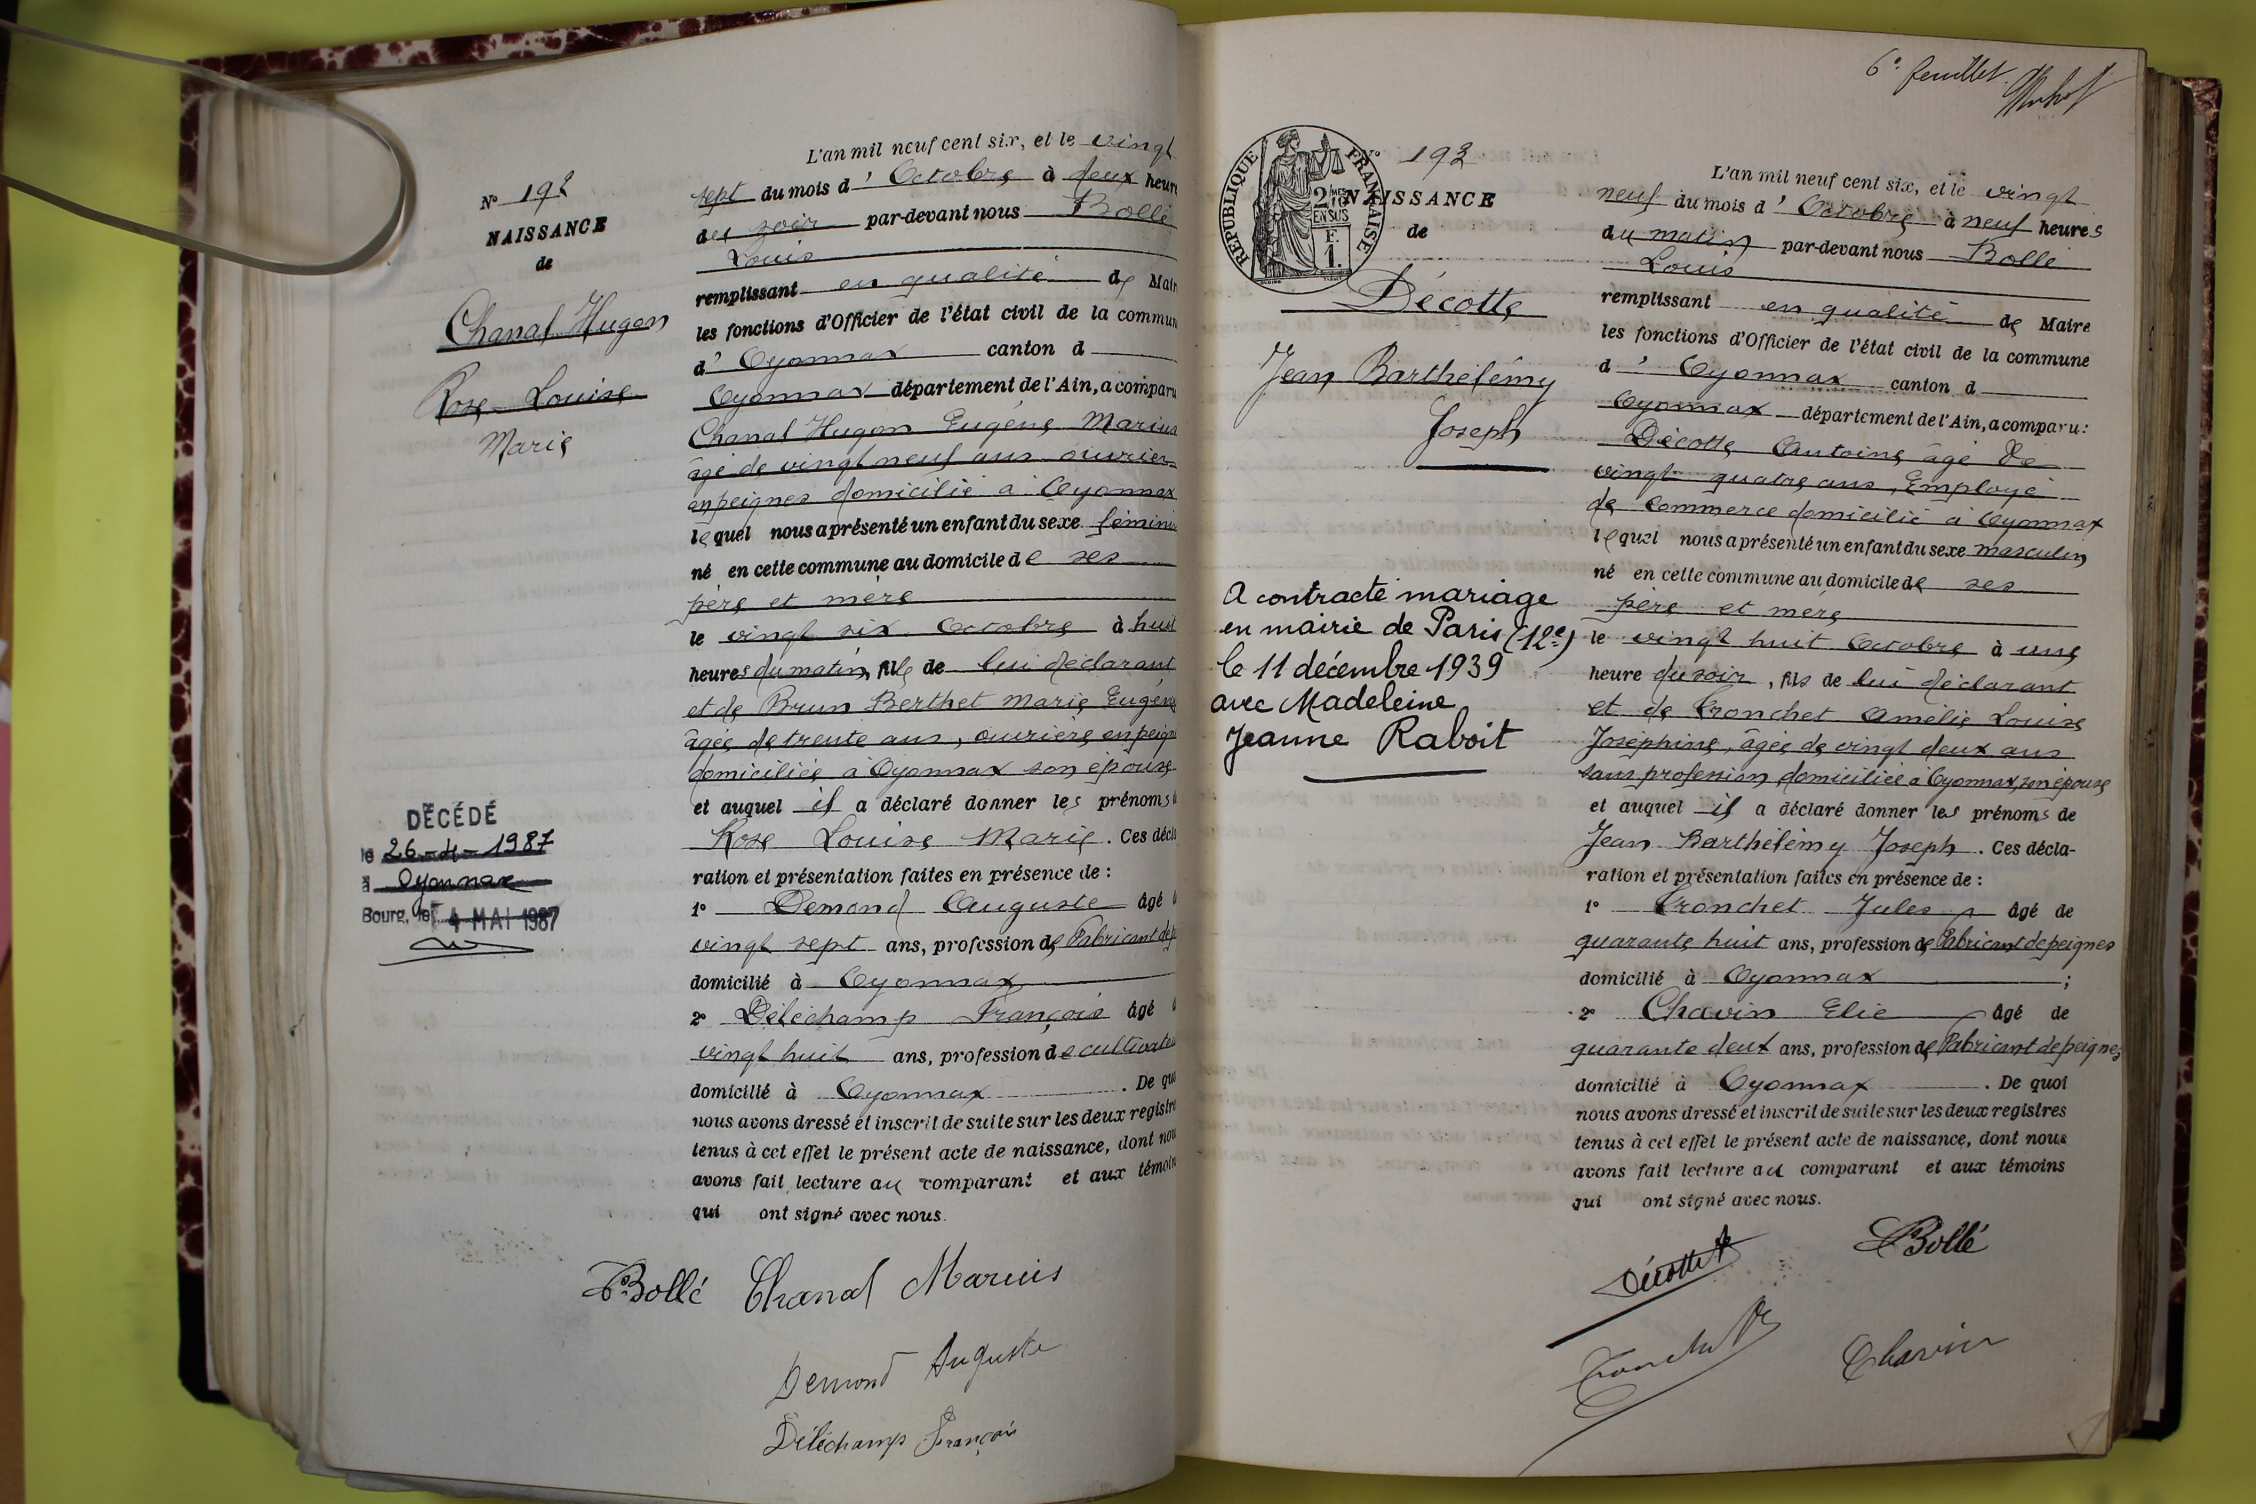 L'an mil neuf cent six, et le vingt
N° 192
NAISSANCE
de
Chanal Hugon
Rose Louise
Marie
sept du mois d' Octobre à deux heur
des soir par-devant nous Bollé
Louis
remplissant en qualité de Mair
les fonctions d'Officier de l'état civil de la commun
d' Oyonnax canton d
Oyonnax département de l'Ain, a comparu
Chanal Hugon Eugène Marius
âgé de vingt neuf ans ouvrier
en peignes domicilié à Oyonnax
lequel nous a présenté un enfant du sexe féminin
né en cette commune au domicile de ses
père et mère
le vingt six Octobre à huit
heures du matin, fille de lui déclarant
et de Brun Berthet Marie Eugénie
âgée de trente ans, ouvrière en peign
domiciliée à Oyonnax son épouse
et auquel il a déclaré donner les prénoms d
Rose Louise Marie. Ces décla
ration et présentation faites en présence de :
1° Demond Auguste âgé d
vingt sept ans, profession de Fabricant de p
domicilié à Oyonnax
2° Déléchamp François âgé d
vingt huit ans, profession de cultivateu
domicilié à Oyonnax. De quo
nous avons dressé et inscrit de suite sur les deux registre
tenus à cet effet le présent acte de naissance, dont nou
avons fait lecture au comparant et aux témoin
qui ont signé avec nous.
DÉCÉDÉ
le 26-4-1987
à Oyonnax
Bourg, le 4 MAI 1987
L. Bollé Chanal Marius
Demond Auguste
Déléchamp François
6e feuillet
RÉPUBLIQUE FRANÇAISE
2/10 MES
EN SUS
F.
1.
N° 193
NAISSANCE
de
Décotte
Jean Barthélémy
Joseph
A contracté mariage
en mairie de Paris (12e)
le 11 décembre 1939
avec Madeleine
Jeanne Raboit
L'an mil neuf cent six, et le vingt
neuf du mois d' Octobre à neuf heures
du matin par-devant nous Bollé
Louis
remplissant en qualité de Maire
les fonctions d'Officier de l'état civil de la commune
d' Oyonnax canton d
Oyonnax département de l'Ain, a comparu :
Décotte Antoine âgé de
vingt quatre ans, Employé
de commerce domicilié à Oyonnax
lequel nous a présenté un enfant du sexe masculin
né en cette commune au domicile de ses
père et mère
le vingt huit Octobre à une
heure du soir, fils de lui déclarant
et de Tronchet Amélie Louise
Joséphine, âgée de vingt deux ans
sans profession, domiciliée à Oyonnax, son épouse
et auquel il a déclaré donner les prénoms de
Jean Barthélémy Joseph. Ces décla-
ration et présentation faites en présence de :
1° Tronchet Jules âgé de
quarante huit ans, profession de Fabricant de peignes
domicilié à Oyonnax ;
2° Chavin Elie âgé de
quarante deux ans, profession de Fabricant de peignes
domicilié à Oyonnax. De quoi
nous avons dressé et inscrit de suite sur les deux registres
tenus à cet effet le présent acte de naissance, dont nous
avons fait lecture au comparant et aux témoins
qui ont signé avec nous.
Décotte A L. Bollé
Chavin